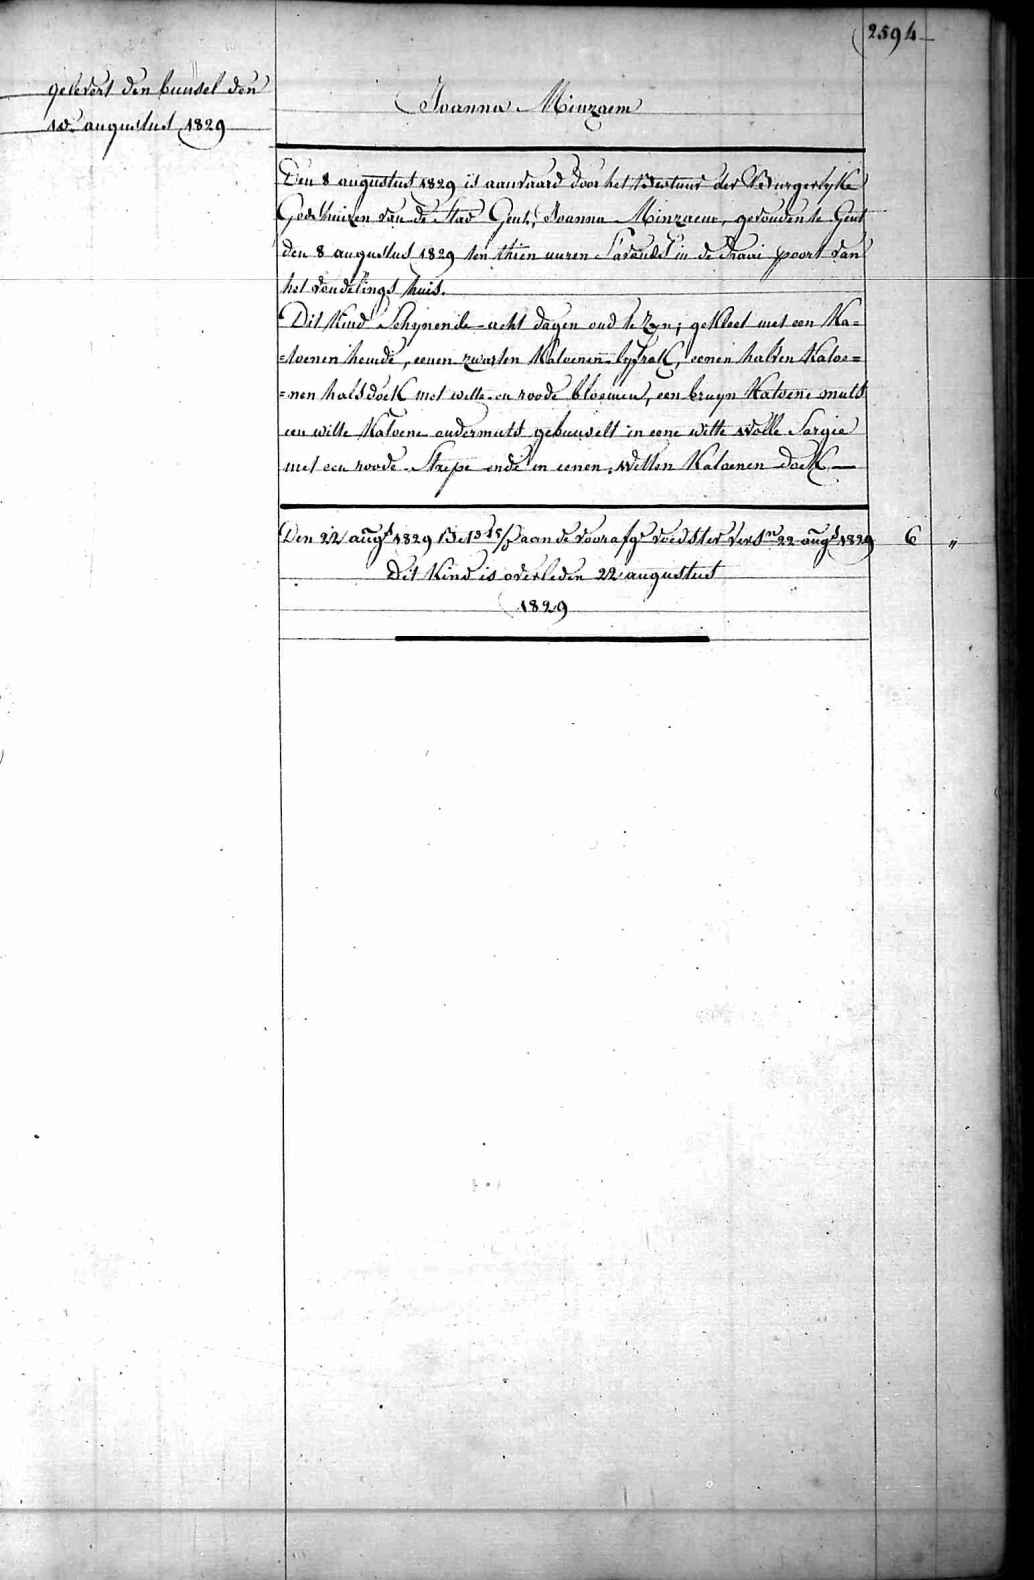 2594
gelevert den bunsel den
10 augustus 1829
Joanna Minzaem
Den 8 augustus 1829 is aanvaard door het Bestuur der Burgerlyke
Godshuizen van de Stad Gent, Joanna Minzaem, gevonden te Gent
den 8 augustus 1829 ten thien uuren S'avonds in de draai poort van
het vondelings huis.
Dit Kind Schynende acht dagen oud te Zyn; gekleet met een Ka=
=toenen hemde, eenen zwarten Katoenen lyfrok, eenen halven Katoe=
=nen halsdoek met witte en roode bloemen, een bruyn Katoene muts
een witte Katoene ondermuts gebunselt in eene witte wolle Sargie
met een roode Strepe ende in eenen witten Katoenen doek —
Den 22 augt 1829 aan de voorafge voedster 22 augt 1829 6 "
Dit Kind is overleden 22 augustus
1829